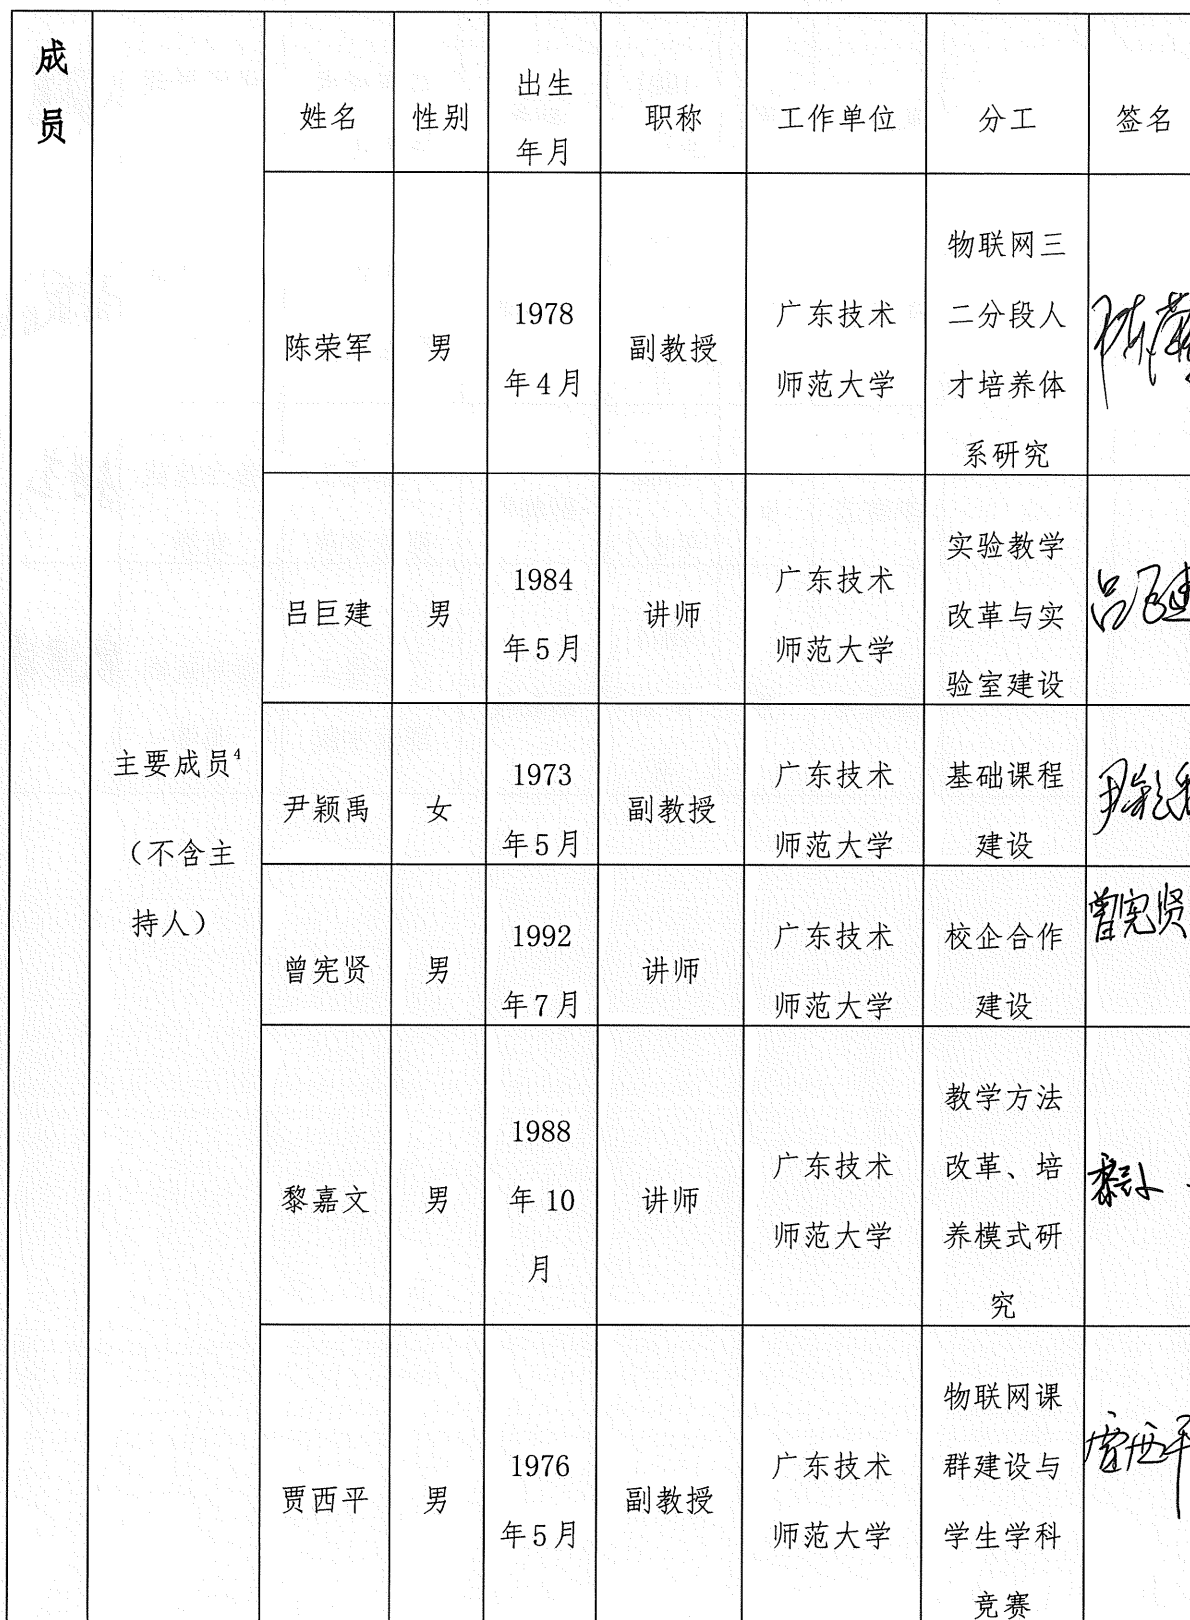 成
员
姓名
性别
出生
年月
职称
工作单位
分工
签名
主要成员4
（不含主
持人）
陈荣军
男
1978
年4月
副教授
广东技术
师范大学
物联网三
二分段人
才培养体
系研究
吕巨建
男
1984
年5月
讲师
广东技术
师范大学
实验教学
改革与实
验室建设
吕巨建
尹颖禹
女
1973
年5月
副教授
广东技术
师范大学
基础课程
建设
曾宪贤
男
1992
年7月
讲师
广东技术
师范大学
校企合作
建设
曾宪贤
黎嘉文
男
1988
年 10
月
讲师
广东技术
师范大学
教学方法
改革、培
养模式研
究
贾西平
男
1976
年5月
副教授
广东技术
师范大学
物联网课
群建设与
学生学科
竞赛
贾西平